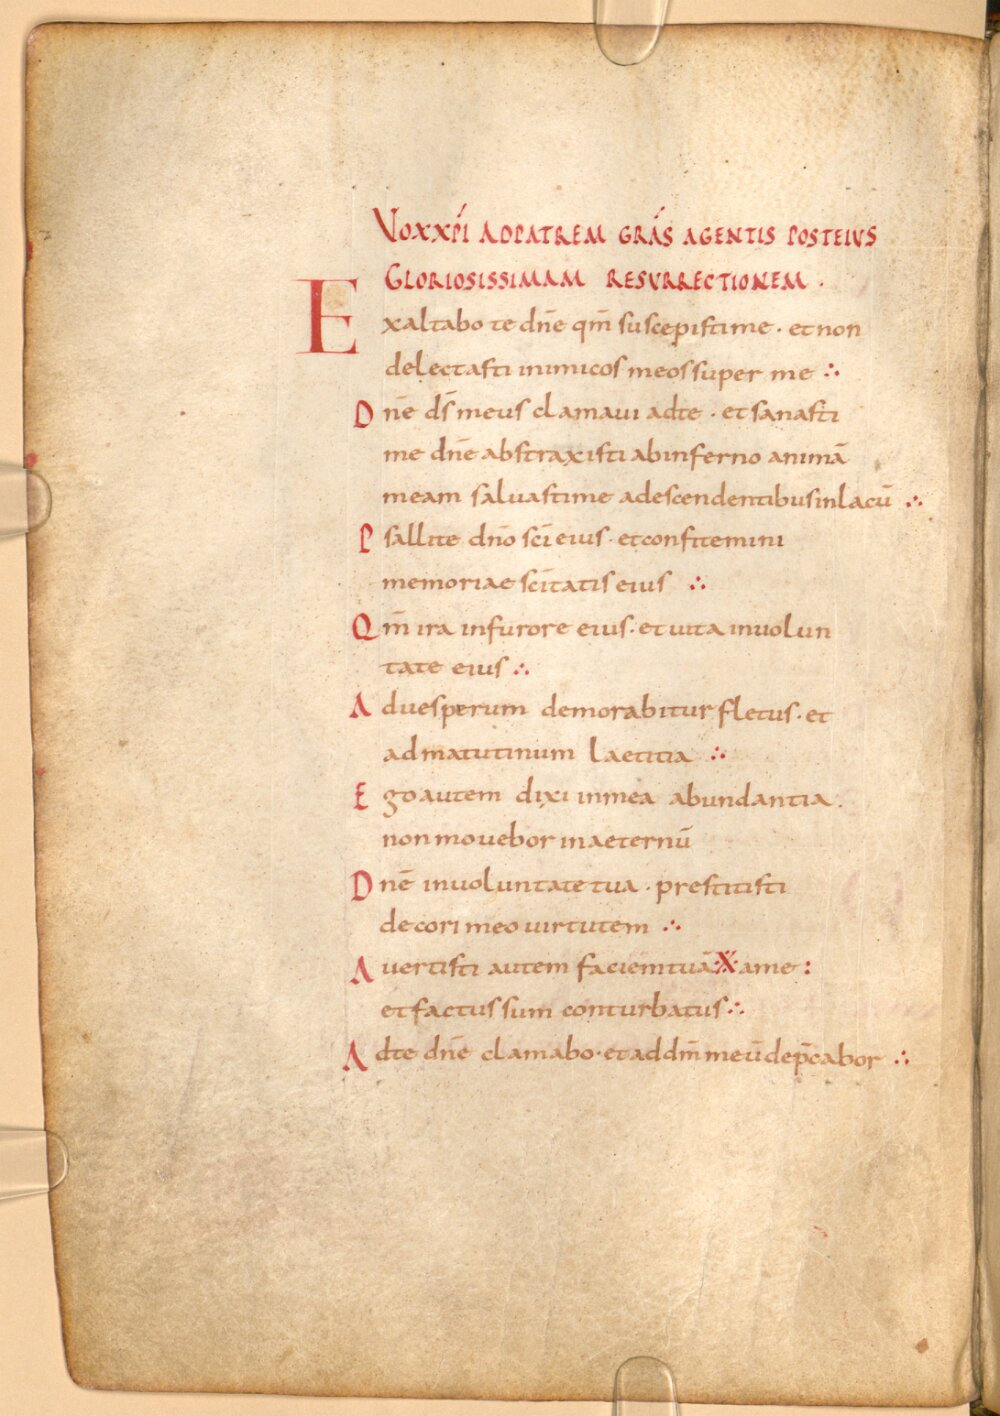 VOX XPI AD PATREM GRAS AGENTIS POST EIVS
GLORIOSISSIMAM RESVRRECTIONEM ·
Exaltabo te dn̄e qm̄ suscepisti me · et non
delectasti inimicos meos super me ∴
Dn̄e ds̄ meus clamaui ad te · et sanasti
me dn̄e abstraxisti ab inferno animā
meam saluasti me a descendentibus in lacū ∴
Psallite dn̄o sc̄i eius · et confitemini
memoriae sc̄itatis eius ∴
Qm̄ ira in furore eius · et uita in uolun
tate eius ∴
Ad uesperum demorabitur fletus · et
ad matutinum laetitia ∴
Ego autem dixi in mea abundantia ·
non mouebor in aeternū
Dn̄e in uoluntate tua · prestitisti
decori meo uirtutem ∴
Auertisti autem faciem tuā ·X· a me :
et factus sum conturbatus ∴
Ad te dn̄e clamabo · et ad dm̄ meū dep̄cabor ∴